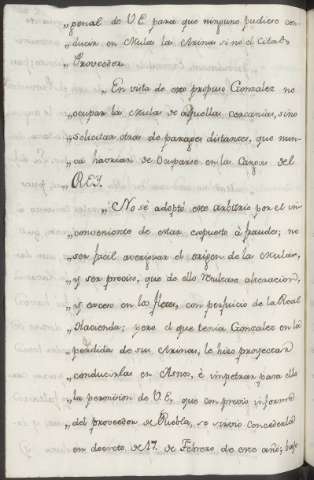 „penal de V.E. para que ninguno pudiese con-
„ducir en Mula la Arina si no el Citado
„Proveedor.
„En vista de esto propuso Gonzalez no
„ocupar la Mula de aquellas cercanias, sino
„solicitar otras de parages distantes, que nun-
„ca havrian de Ocuparse en la Carga del
„REY.
„No se adoptó este arbitrio por el in-
„conveniente de estar expuesto á fraudes; no
„ser facil averiguar el origen de las Mulas,
„y ser preciso, que de ello resultase alteracion,
„y exceso en los fletes, con perjuicio de la Real
„Hacienda; pero el que tenia Gonzalez en la
„perdida de sus Arinas, le hizo proyectar
„conducirlas en Asnos, é impetrar para ello
„la permision de V.E., que con previo informe
„del proveedor de Puebla, se sirvió concederla
„en decreto de 17. de Febrero de este año; bajo